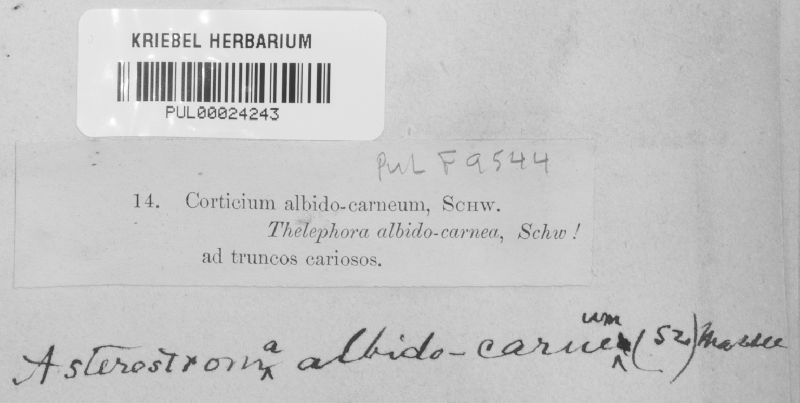 KRIEBEL HERBARIUM
PUL00024243
PUL F 9544
14. Corticium albido-carneum, SCHW.
Thelephora albido-carnea, Schw !
ad truncos cariosos.
Asterostroma albido-carneum (Sz) Massee